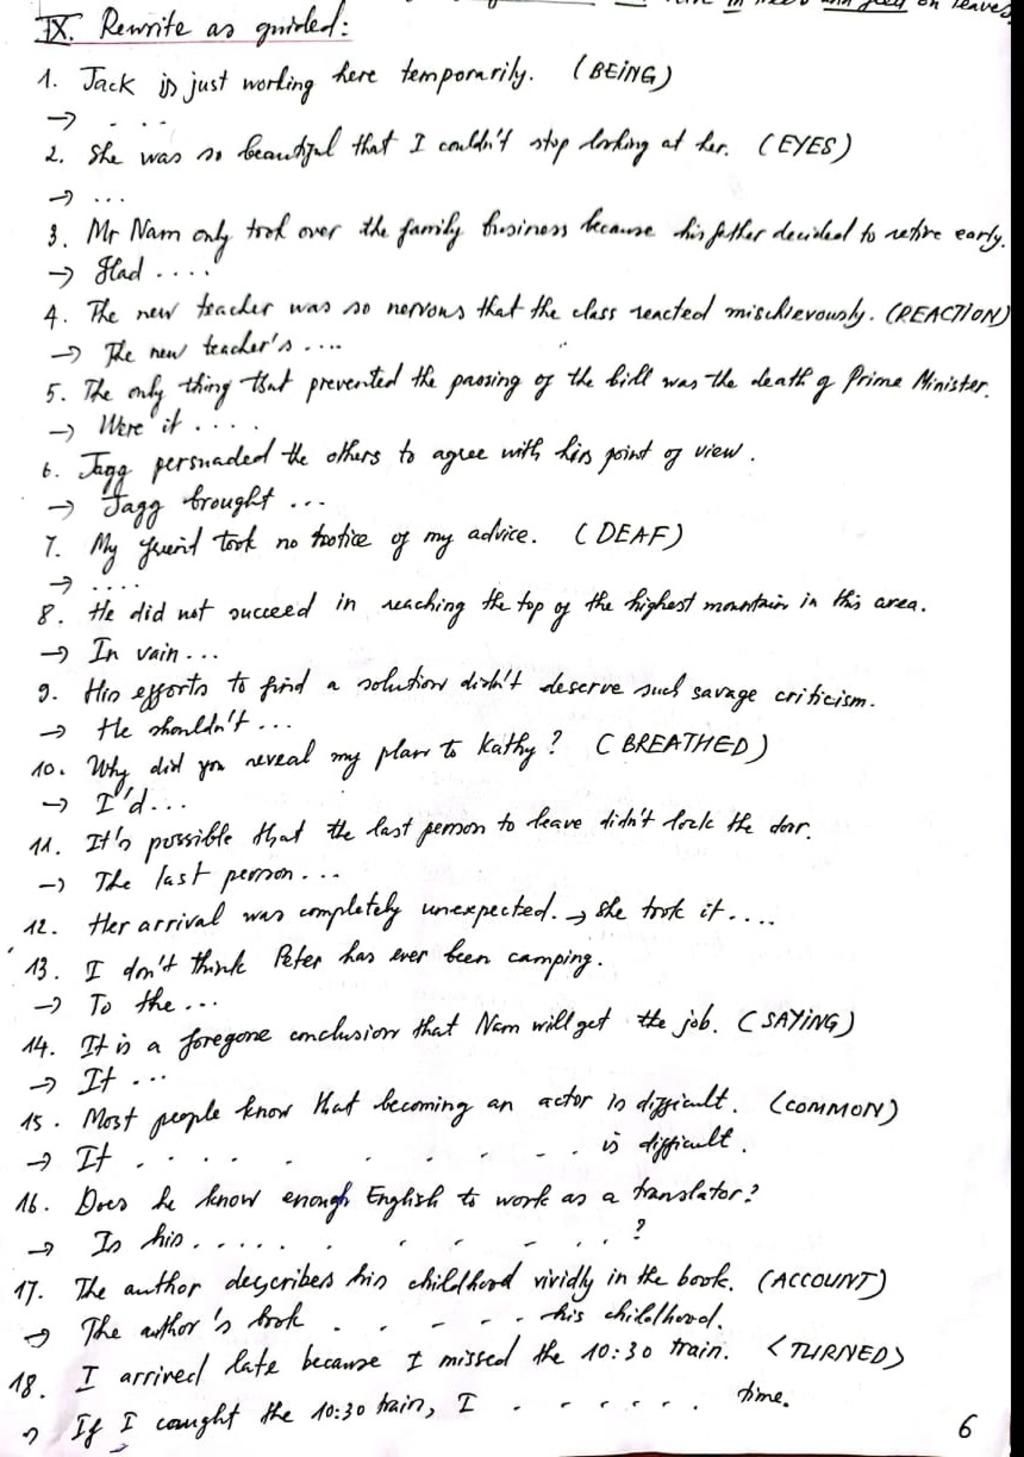 in trees and feed on leaves.
IX. Rewrite as guided:
1. Jack is just working here temporarily. (BEING)
→ ...
2. She was so beautiful that I couldn't stop looking at her. (EYES)
→ ...
3. Mr Nam only took over the family business because his father decided to retire early.
→ Had ....
4. The new teacher was so nervous that the class reacted mischievously. (REACTION)
→ The new teacher's ....
5. The only thing that prevented the passing of the bill was the death of Prime Minister.
→ Were it ....
6. Jagg persuaded the others to agree with his point of view.
→ Jagg brought ...
7. My friend took no notice of my advice. (DEAF)
→ ....
8. He did not succeed in reaching the top of the highest mountain in this area.
→ In vain...
9. His efforts to find a solution didn't deserve such savage criticism.
→ He shouldn't...
10. Why did you reveal my plan to Kathy? (BREATHED)
→ I'd...
11. It's possible that the last person to leave didn't lock the door.
→ The last person...
12. Her arrival was completely unexpected. → She took it....
13. I don't think Peter has ever been camping.
→ To the...
14. It is a foregone conclusion that Nam will get the job. (SAYING)
→ It ...
15. Most people know that becoming an actor is difficult. (COMMON)
→ It . . . . . . . . . . is difficult.
16. Does he know enough English to work as a translator?
→ Is his . . . . . . . . . . ?
17. The author describes his childhood vividly in the book. (ACCOUNT)
→ The author's book . . . . . his childhood.
18. I arrived late because I missed the 10:30 train. (TURNED)
→ If I caught the 10:30 train, I . . . . . . time.
6